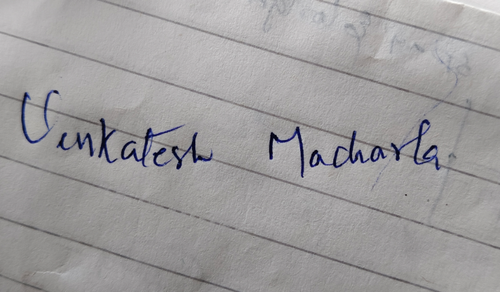 Venkatesh Macharla